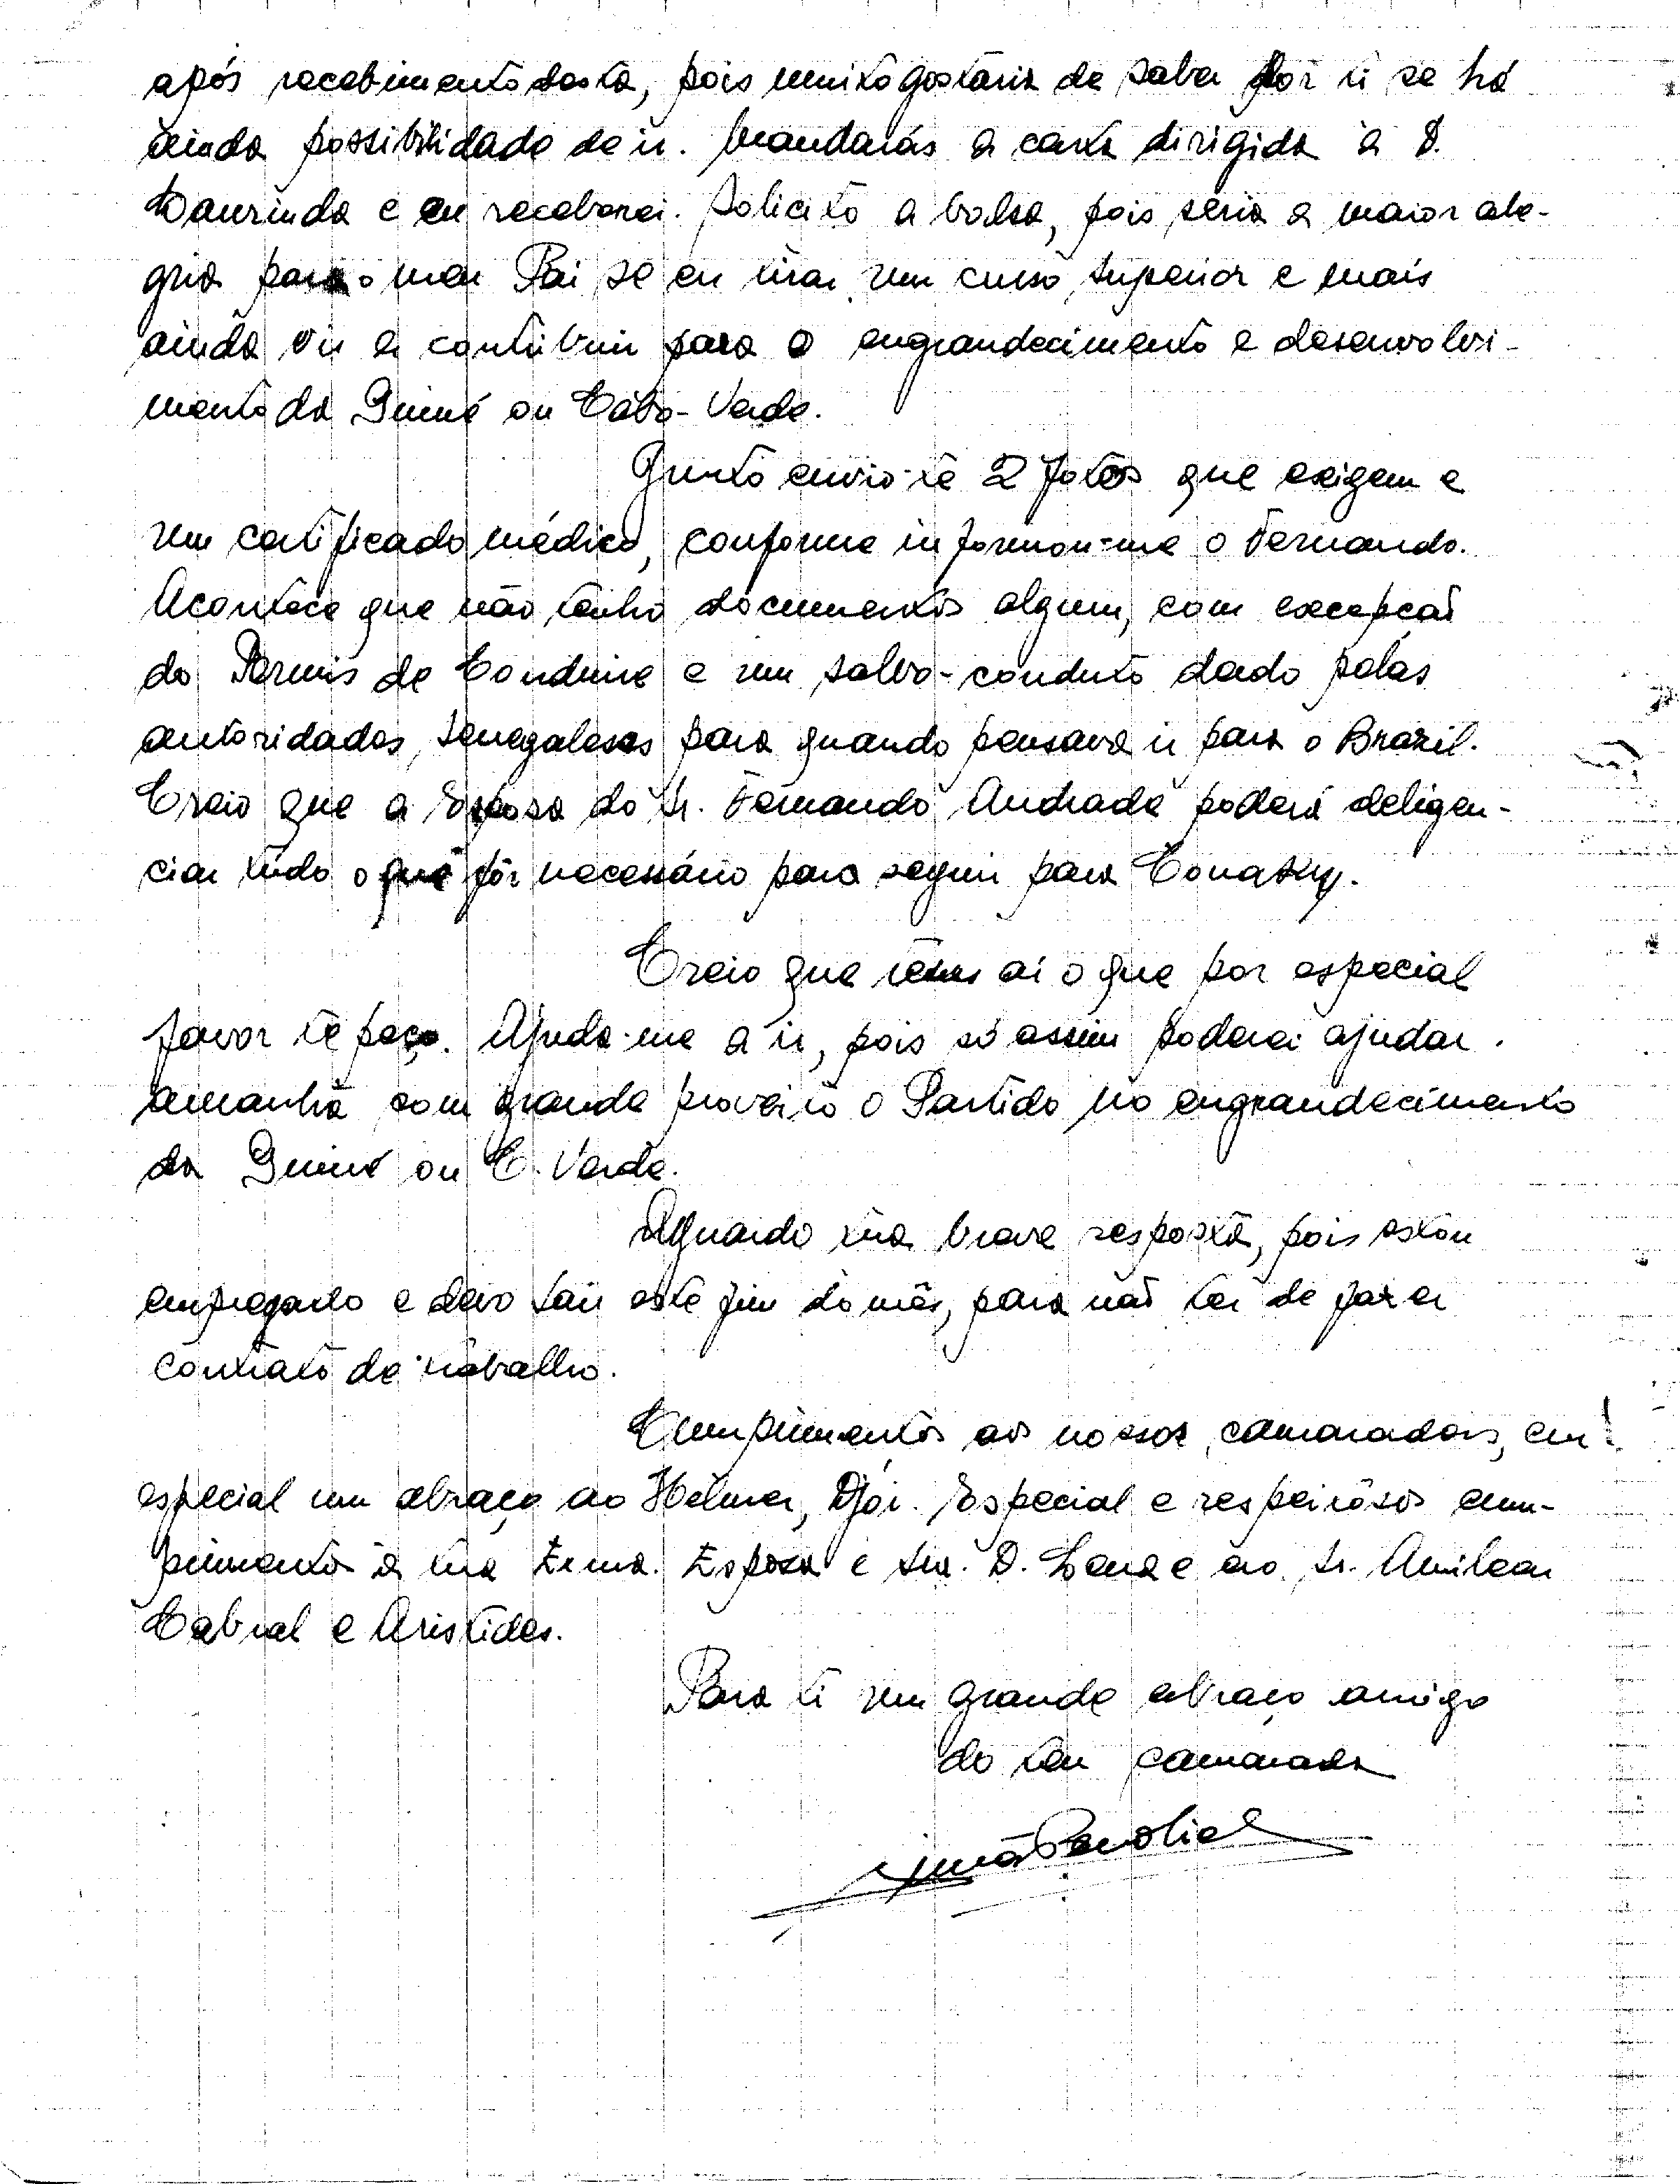 após recebimento desta, pois muito gostaria de saber por ti se há
ainda possibilidade de ir. Mandarás a carta dirigida à D.
Laurinda e eu receberei. Solicito a bolsa, pois seria a maior ale-
gria para o meu Pai se eu tirar um curso superior e mais
ainda vir a contribuir para o engrandecimento e desenvolvi-
mento da Guiné ou Cabo-Verde.
Junto envio-te 2 fotos que exigem e
um certificado médico, conforme informou-me o Fernando.
Acontece que não tenho documentos algum, com excepção
do Permis de Conduire e um salvo-conduto dado pelas
autoridades senegalesas para quando pensava ir para o Brazil.
Creio que a Esposa do Sr. Fernando Andrade poderá deligen-
ciar tudo o que fôr necessário para seguir para Conakry.
Creio que tens aí o que por especial
favor te peço. Ajuda-me a ir, pois só assim poderei ajudar
amanhã com grande proveito o Partido no engrandecimento
da Guiné ou C. Verde.
Aguardo tua breve resposta, pois estou
empregado e devo sair este fim do mês, para não ter de fazer
contrato de trabalho.
Cumprimentos aos nossos camaradas, em
especial um abraço ao Hélmer, Djói. Especial e respeitosos cum-
primentos à tua Exma. Esposa e Sra. D. Lena e ao Sr. Amilcar
Cabral e Aristides.
Para ti um grande abraço amigo
do teu camarada